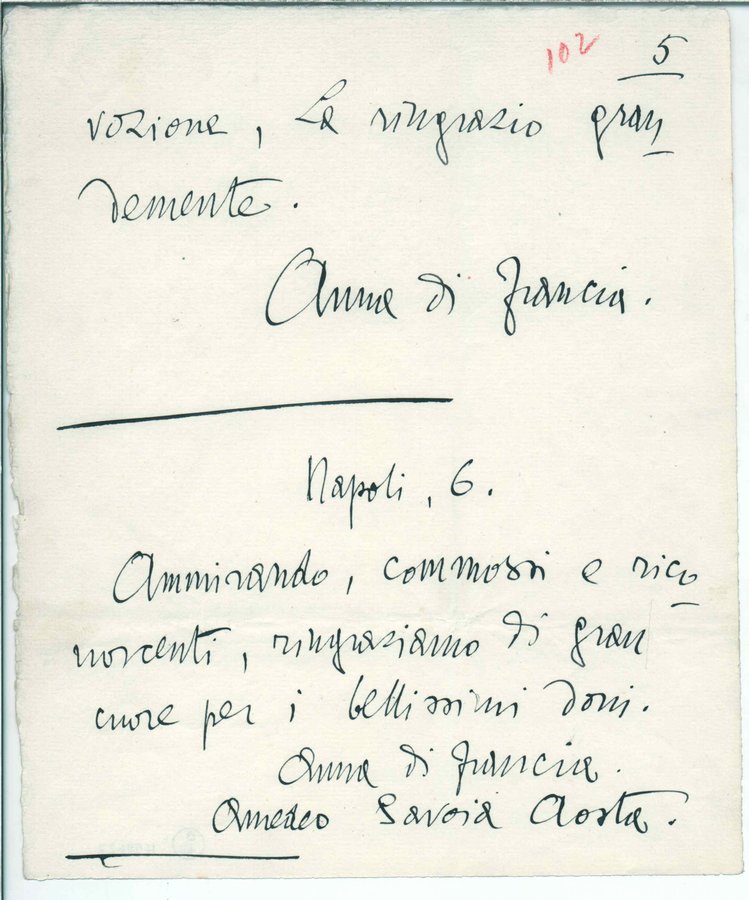 102 5
vozione, La ringrazio gran
demente.
Anna di Francia.
Napoli, 6.
Ammirando, commossi e rico
noscenti, ringraziamo di gran
cuore per i bellissimi doni.
Anna di Francia.
Amedeo Savoia Aosta.